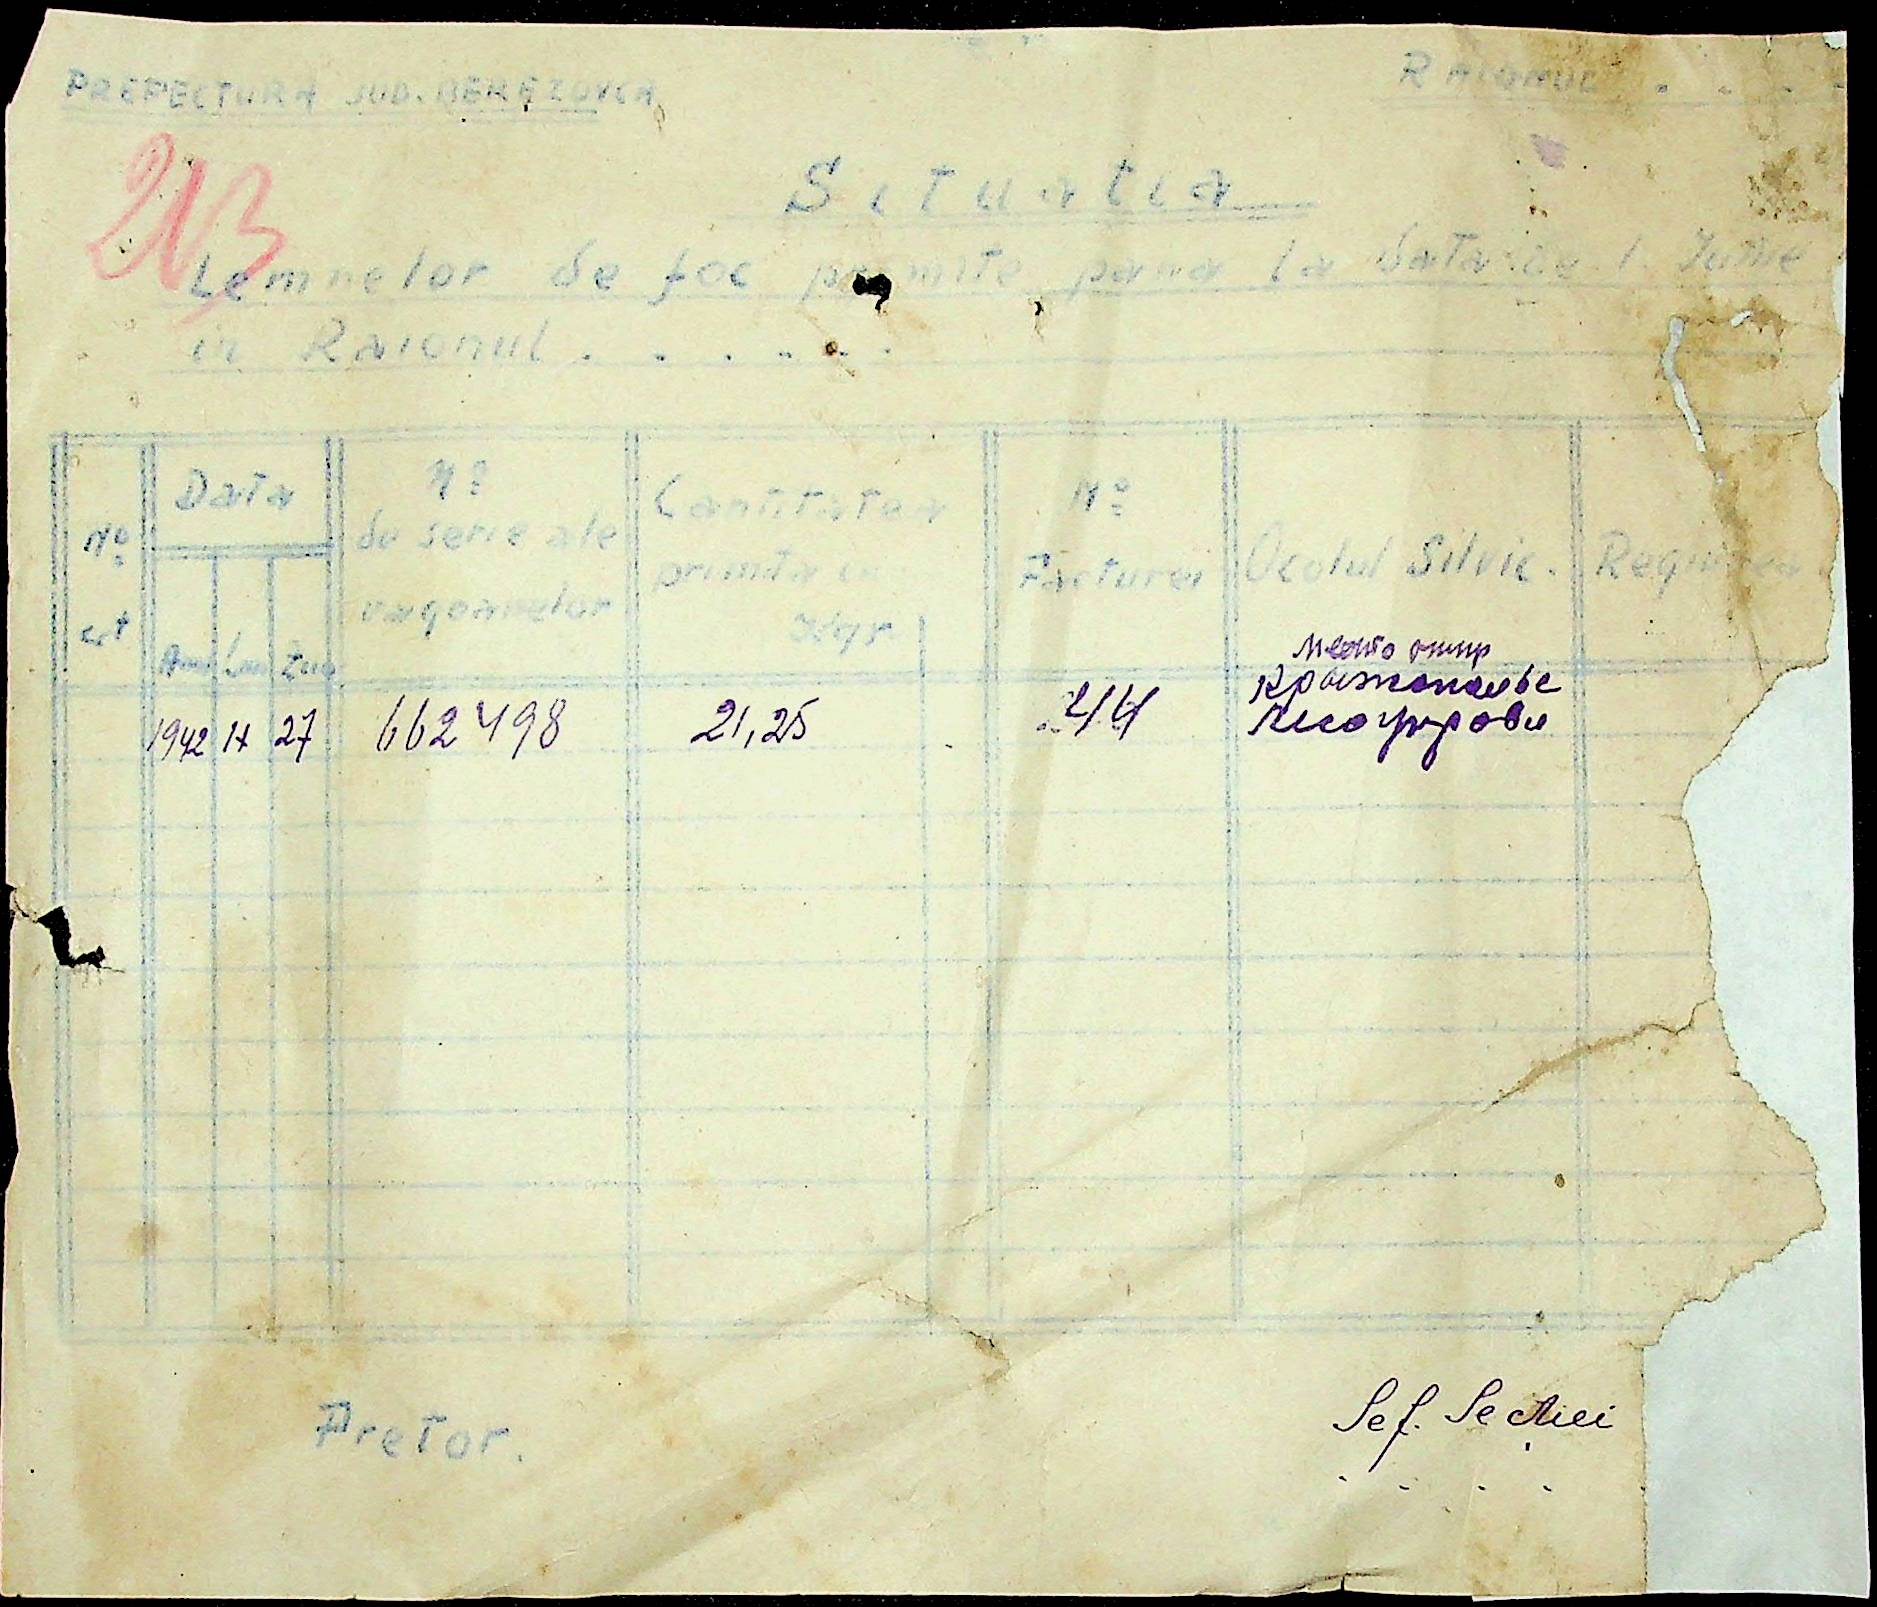 PREFECTURA JUD. BEREZOVCA
RAIONUL . . . .
213
Situatia
Lemnelor de foc primite pana la data de 1 Iunie
in Raionul . . . . . .
Nº crt
Data
Anul Luna Ziua
Nº de serie ale vagoanelor
Cantitatea primita in kgr.
Nº Facturei
Ocolul Silvic.
1942 IX 27 662498 21,25 44
Крыжополье
Pretor.
Sef. Sectiei
. . . .